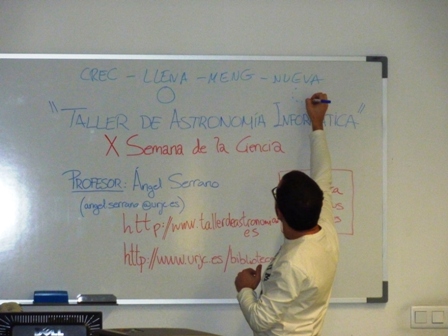 CREC - LLENA - MENG - NUEVA
"TALLER DE ASTRONOMÍA INFORMÁTICA"
X Semana de la Ciencia
PROFESOR: Ángel Serrano
(angel.serrano@urjc.es)
http://www.tallerdeastronomia
es
http://www.urjc.es/bibliotec
DELL